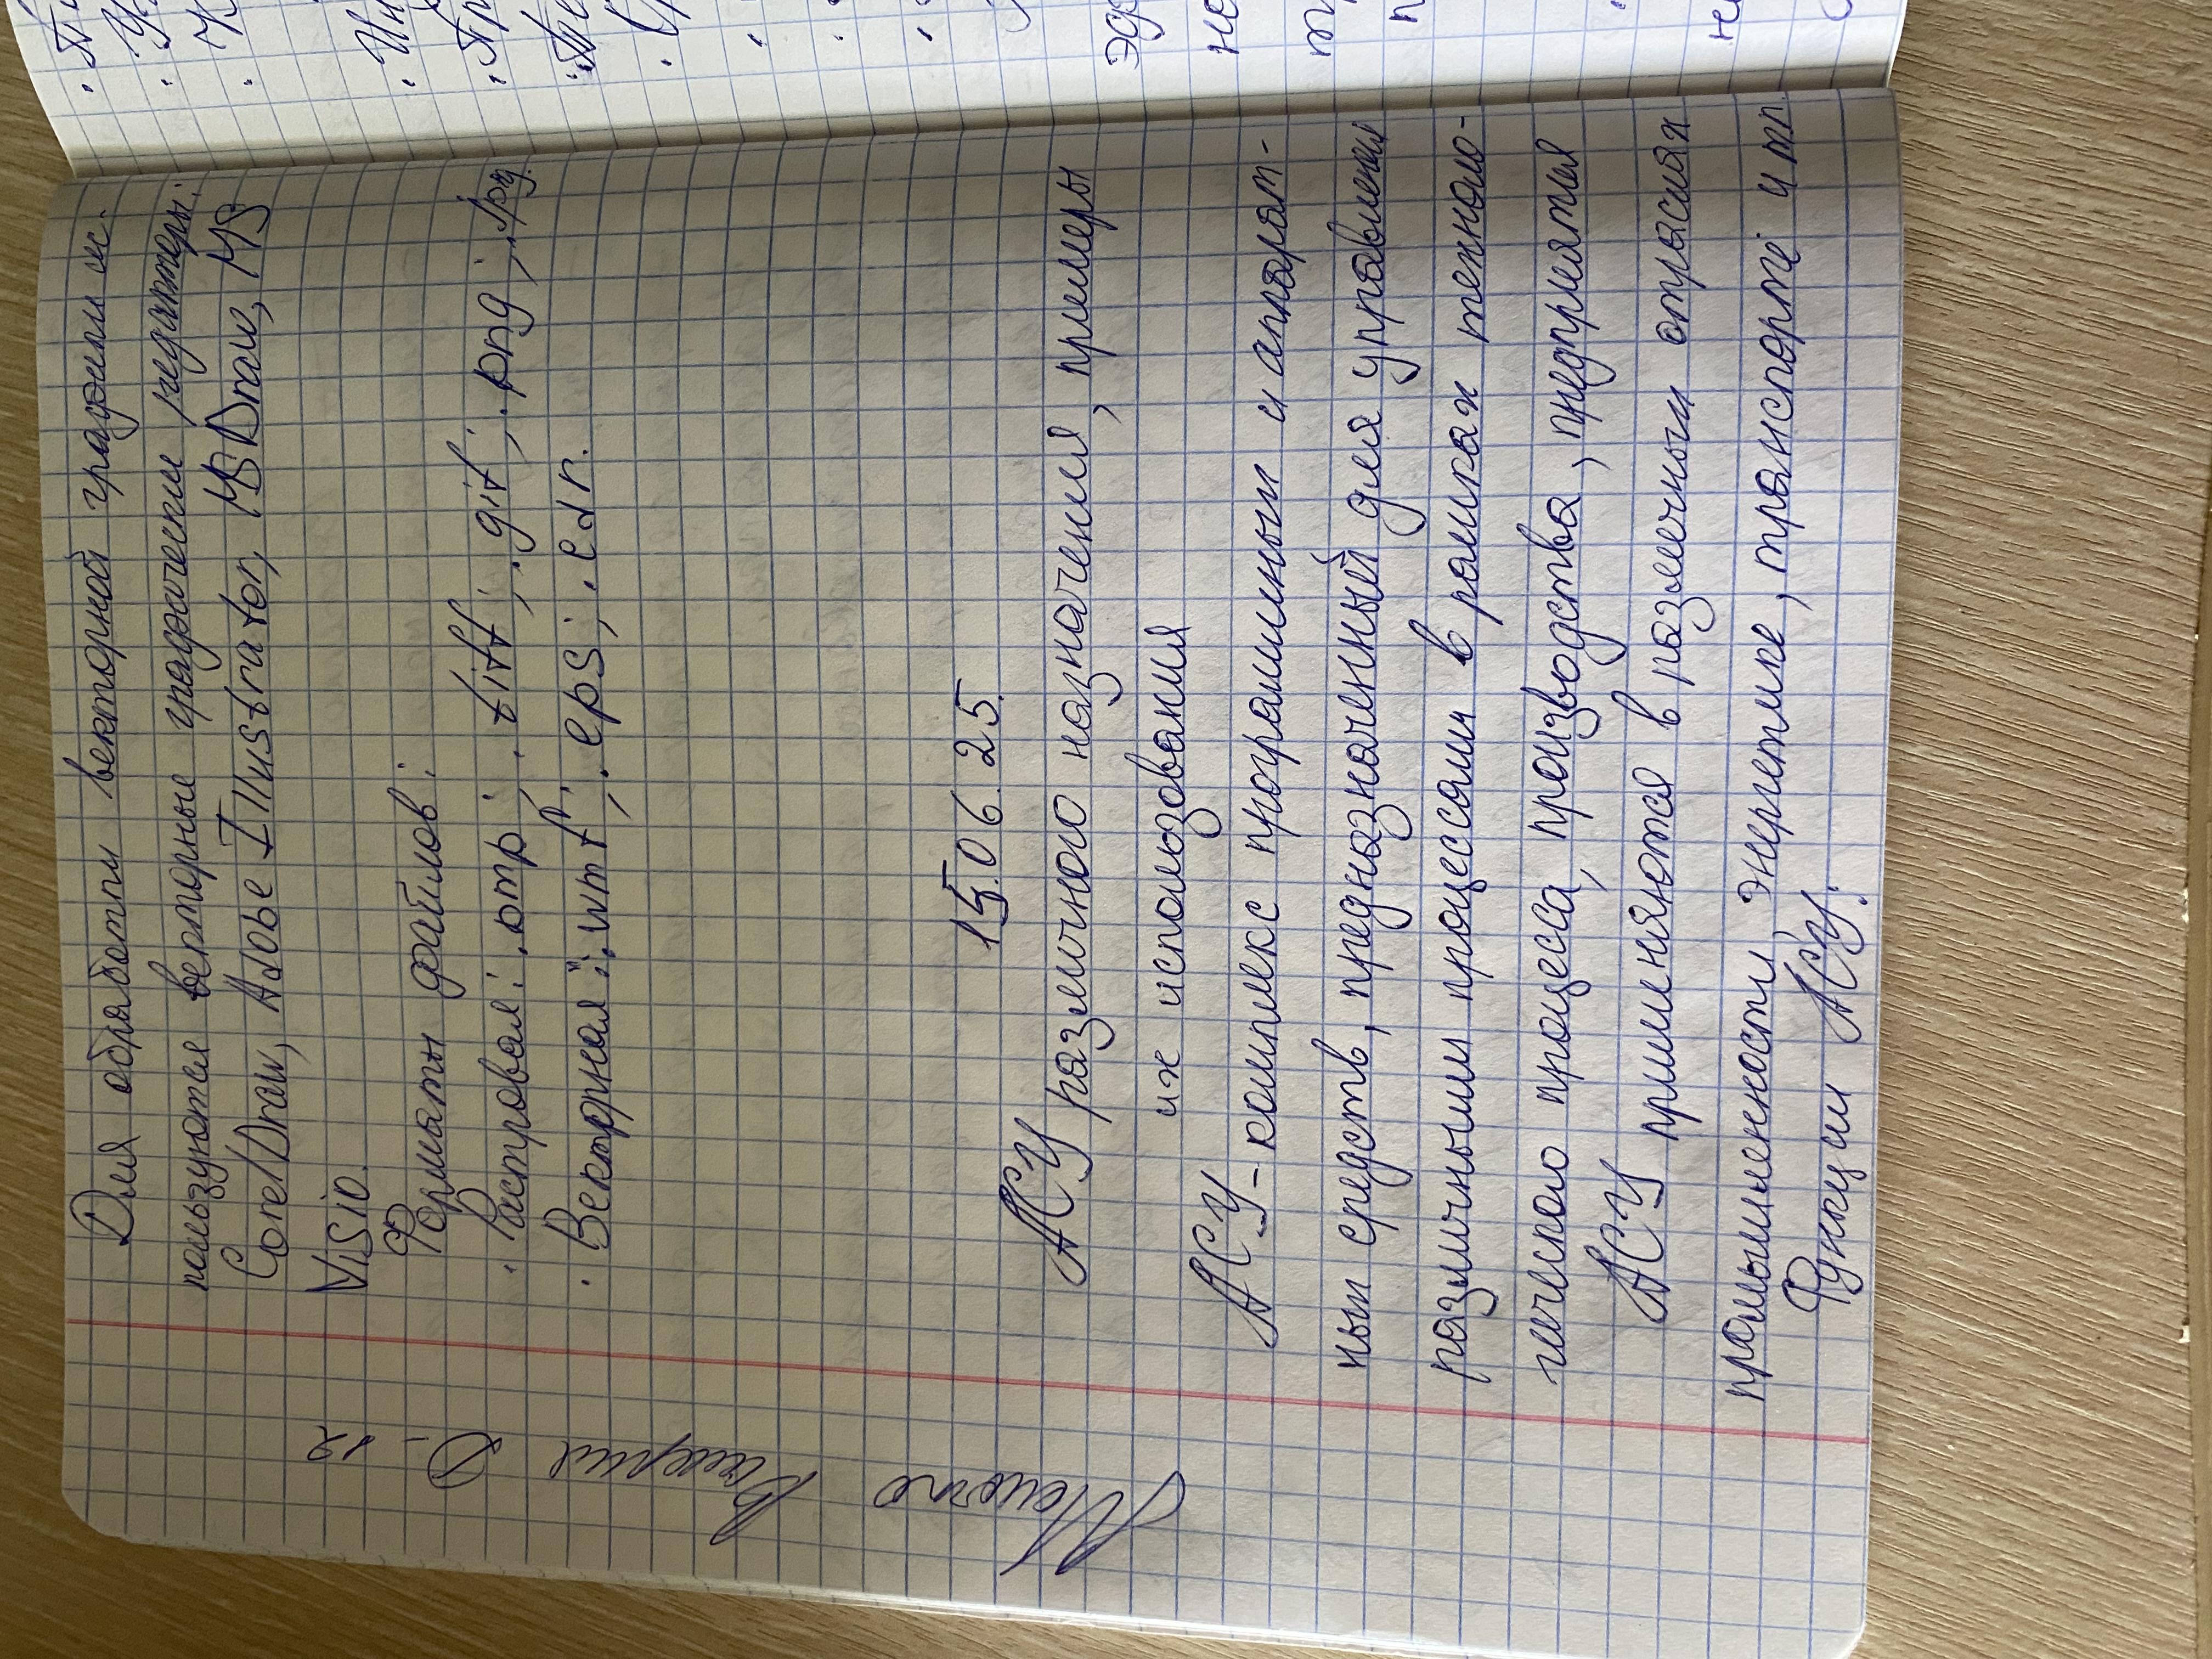 Для обработки векторной графики ис-
пользуются векторные графические редакторы:
CorelDraw, Adobe Illustrator, MS Draw, MS
Visio.
Форматы файлов:
· Растровая: .bmp; .tiff; .gif; .png; .jpg.
· Векторная: .wmf; .eps; .cdr.
15.06.25.
АСУ различного назначения, примеры
их использования
АСУ - комплекс программных и аппарат-
ных средств, предназначенный для управления
различными процессами в рамках техноло-
гического процесса, производства, предприятия
АСУ применяются в различных отраслях
промышленности, энергетике, транспорте и тп.
Функции АСУ:
Валерия
Д-12